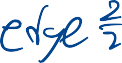 edge 2/2